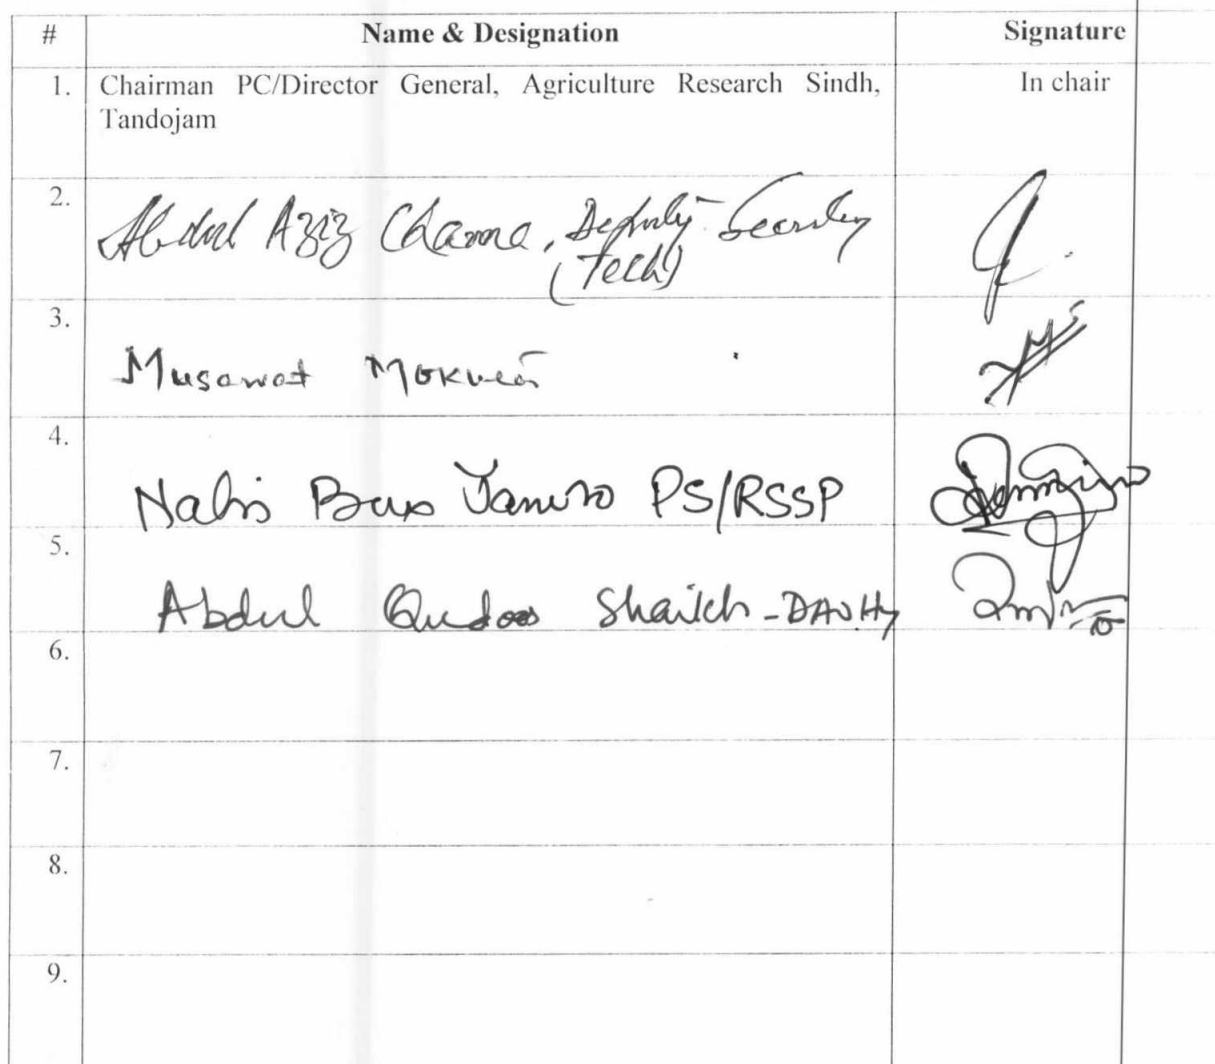 # Name & Designation Signature
1. Chairman PC/Director General, Agriculture Research Sindh, In chair
Tandojam
2. Abdul Aziz Channa, Deputy Secretary
(Tech)
3.
Musawat
4.
Nabi Bux PS/RSSP
5.
Abdul Qudoos Shaikh -
6.
7.
8.
9.